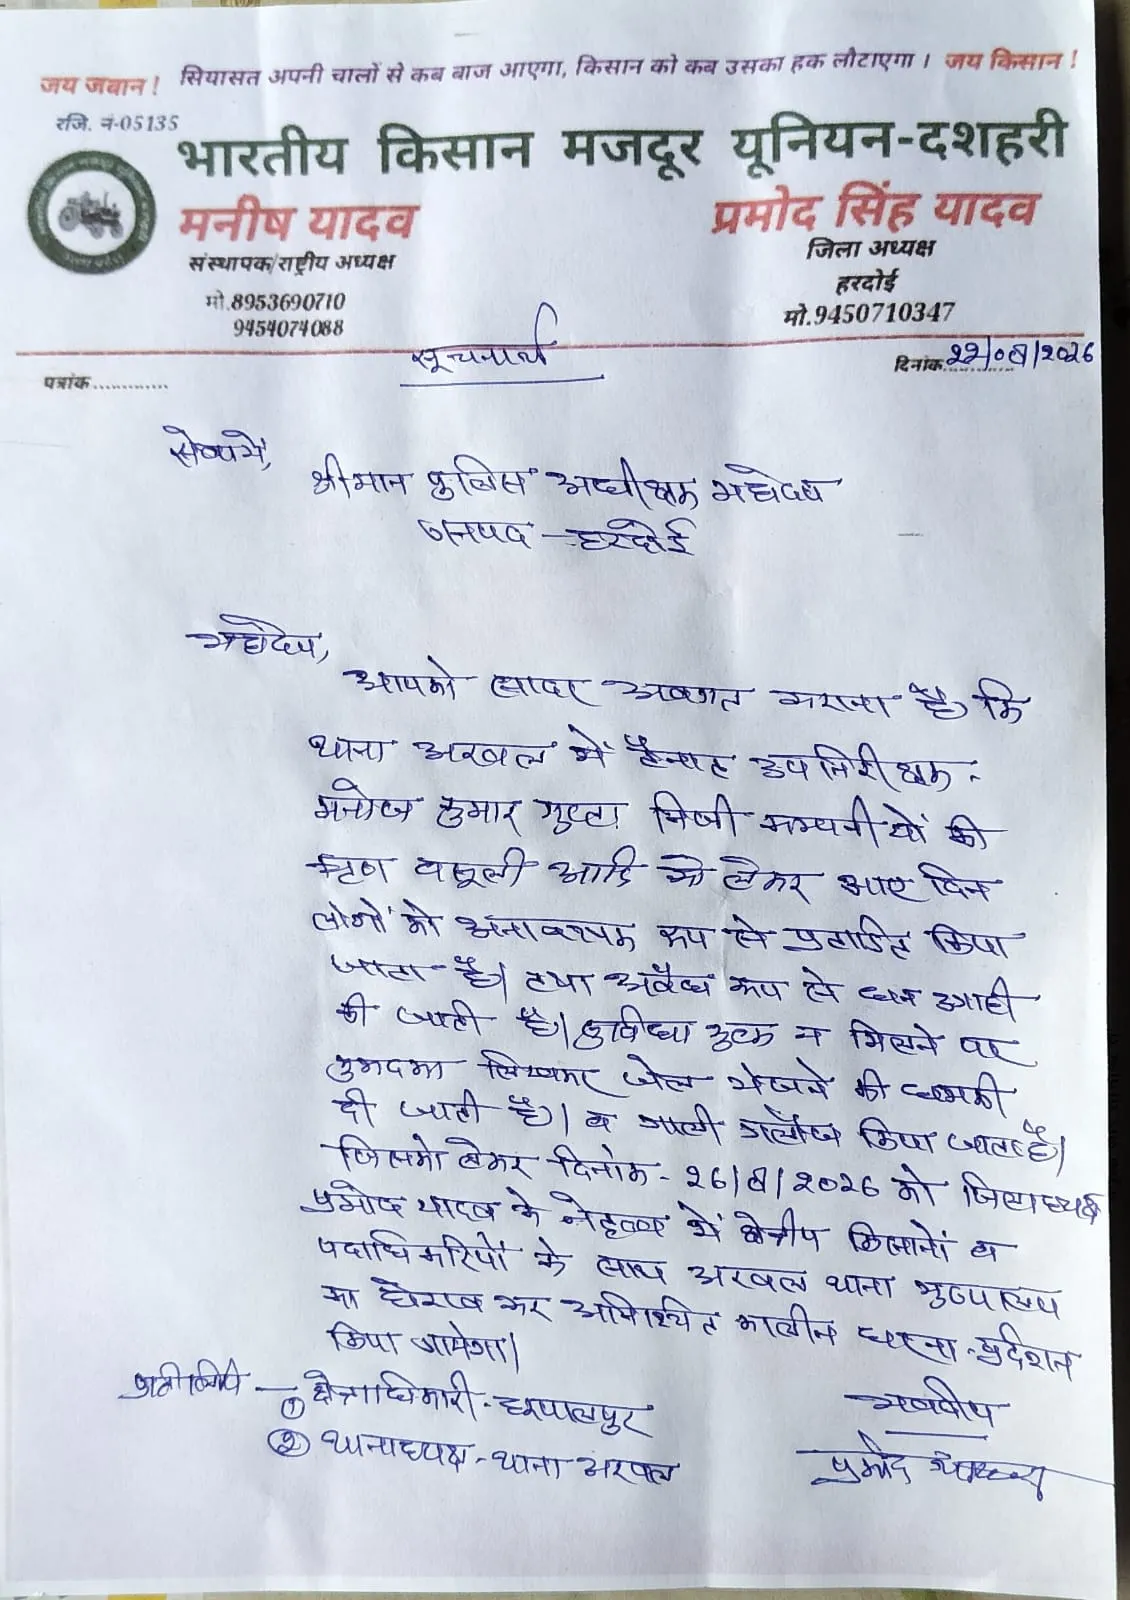 जय जवान ! सियासत अपनी चालों से कब बाज आएगा, किसान को कब उसका हक लौटाएगा । जय किसान !
रजि. नं-05135
भारतीय किसान मजदूर यूनियन-दशहरी
मनीष यादव
संस्थापक/राष्ट्रीय अध्यक्ष
मो.8953690710
9454074088
प्रमोद सिंह यादव
जिला अध्यक्ष
हरदोई
मो.9450710347
सूचनार्थ
पत्रांक............
दिनांक 22/08/2026
सेवामें,
श्रीमान पुलिस अधीक्षक महोदय
जनपद - हरदोई
महोदय,
आपको सादर अवगत कराना है कि
थाना अरवल में तैनात उपनिरीक्षक -
मनोज कुमार गुप्ता निजी कम्पनीयों की
ऋण वसूली आदि को लेकर आए दिन
लोगों को अनावश्यक रूप से प्रताडित किया
जाता है। तथा अवैध रूप से धन उगाही
की जाती है। सुविधा शुल्क न मिलने पर
मुकदमा लिखकर जेल भेजने की धमकी
दी जाती है। व गाली गलौज किया जाता है।
जिसको लेकर दिनांक - 26/8/2026 को जिलाध्यक्ष
प्रमोद यादव के नेतृत्व में क्षेत्रीय किसानों व
पदाधिकारियों के साथ अरवल थाना मुख्यालय
का घेराव कर अनिश्चित कालीन धरना - प्रदर्शन
किया जायेगा।
प्रतिलिपि — ① क्षेत्राधिकारी - हरपालपुर
② थानाध्यक्ष - थाना अरवल
भवदीय
प्रमोद यादव